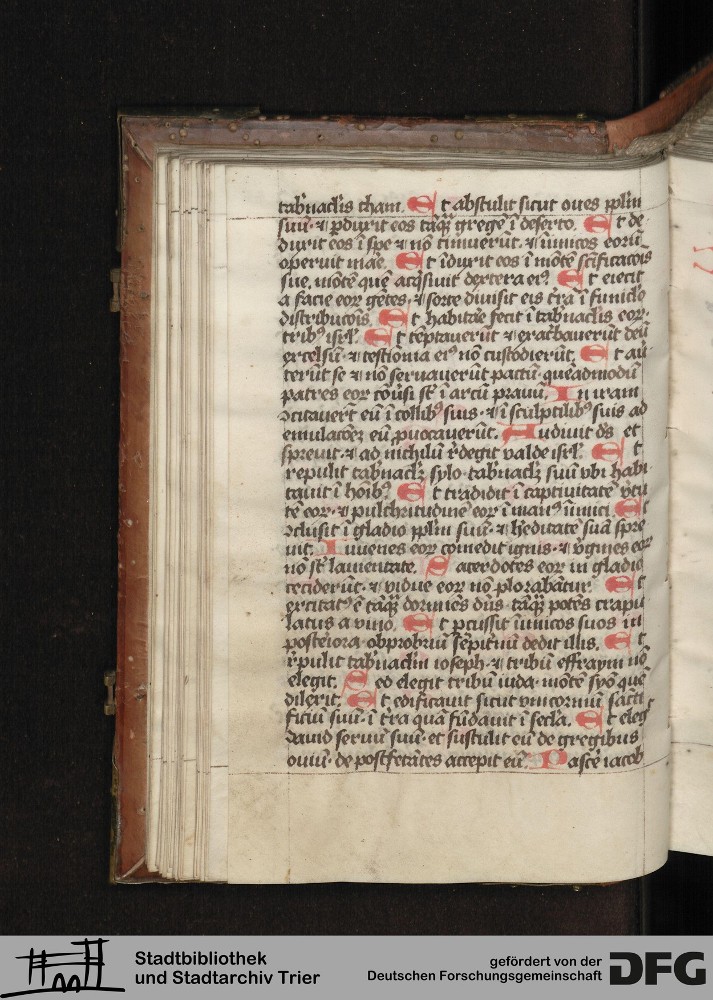 tab̾nacl̾is cham. Et abstulit sicut oues ppl̄m
suū ⁊ ꝑduxit eos tāqͣ gregē ī deserto. Et de
duxit eos ī spe ⁊ nō timuerūt ⁊ īimicos eorū
operuit mar̾e. Et īduxit eos ī mōtē sc̄ificacōis
sue, mōtē quē acq̄siuit dextera eiꝰ. Et eiecit
a facie eoꝝ gētes ⁊ sorte diuisit eis t̾ra ī funic̄lo
distribucōis. Et habitar̾e fecit ī tab̾naclis eoꝝ
tribꝰ isrl̾. Et tēptauerūt ⁊ exac̾bauerūt deū
excelsū ⁊ testīonia eiꝰ nō custodierūt. Et au
terūt se ⁊ nō seruauerūt pactū queadmodū
patres eoꝝ cōu̾si st̄ ī arcū prauū. In iram
ↄcitauer̄t eū ī collibꝰ suis ⁊ ī sculptilibꝰ suis ad
emulacōeꝫ eū ꝓuocauerūt. Audiuit dꝰs et
spreuit ⁊ ad nichilū r̾degit valde isrl̾. Et
repulit tab̾nacl̄ꝫ sylo tab̾nacl̄ꝫ suū vbi habi
tauit ī hoībꝰ. Et tradidit ī captiuitatē v̾tu
tē eoꝝ ⁊ pulchritudinē eoꝝ ī manꝰ īimici. Et
ↄclusit ī gladio ppl̄m suū ⁊ h̾editatē suā spre
uit. Iuuenes eoꝝ comedit ignis ⁊ v̾gines eoꝝ
nō st̄ lamentate. Sacerdotes eoꝝ in gladio
ceciderūt ⁊ vidue eoꝝ nō plorabātur. Et
excitatꝰ ē tāqͣ dormiēs dn̄s tāqͣ potēs crapu
latus a vino. Et ꝑcussit īimicos suos in
posteiora obprobriū sēpit̾nū dedit illis. Et
r̾pulit tab̾naclm̄ ioseph ⁊ tribū effraym nō
elegit. Sed elegit tribū iuda mōtē syō quē
dilexit. Et edificauit sicut vnicorniū sacti
ficiū suū ī t̾ra quā fūdauit ī secl̄a. Et eleg̾
dauid seruū suū et sustulit eū de gregibus
ouiū de postfetātes accepit eū. Pascē iacob
Stadtbibliothek
und Stadtarchiv Trier
gefördert von der
Deutschen Forschungsgemeinschaft
DFG